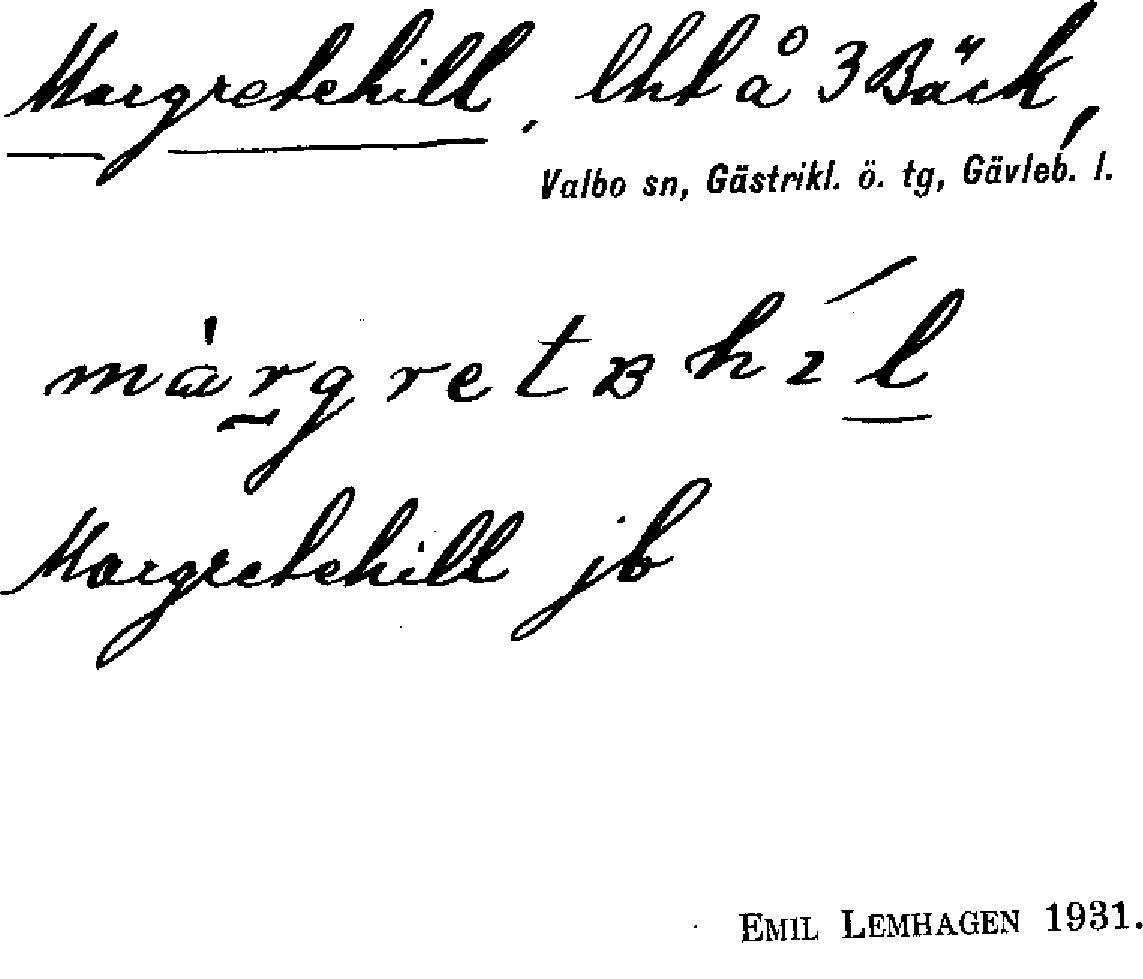 Margretehill, lht å 3 Bäck,
Valbo sn, Gästrikl. ö. tg, Gävleb. l.
màrgretʙhíl
Margretehill jb
EMIL LEMHAGEN 1931.